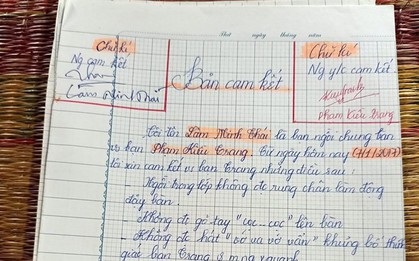 Thứ ngày tháng năm
Chữ kí
Ng cam kết
Lâm Minh Thái
Bản cam kết
Chữ kí
Ng y/c cam kết
Phạm Kiều Trang
Tôi tên Lâm Minh Thái là bạn ngồi chung bàn
vs bạn Phạm Kiều Trang. Từ ngày hôm nay (7/1/2017)
tôi xin cam kết vs bạn Trang những điều sau :
Ngồi trong lớp không đc rung chân làm động
dây bàn.
- Không đc gõ tay "cọc_cọc" lên bàn
- Không đc hát "vớ va vớ vẩn" khủng bố
bạn Trang & mng x quanh